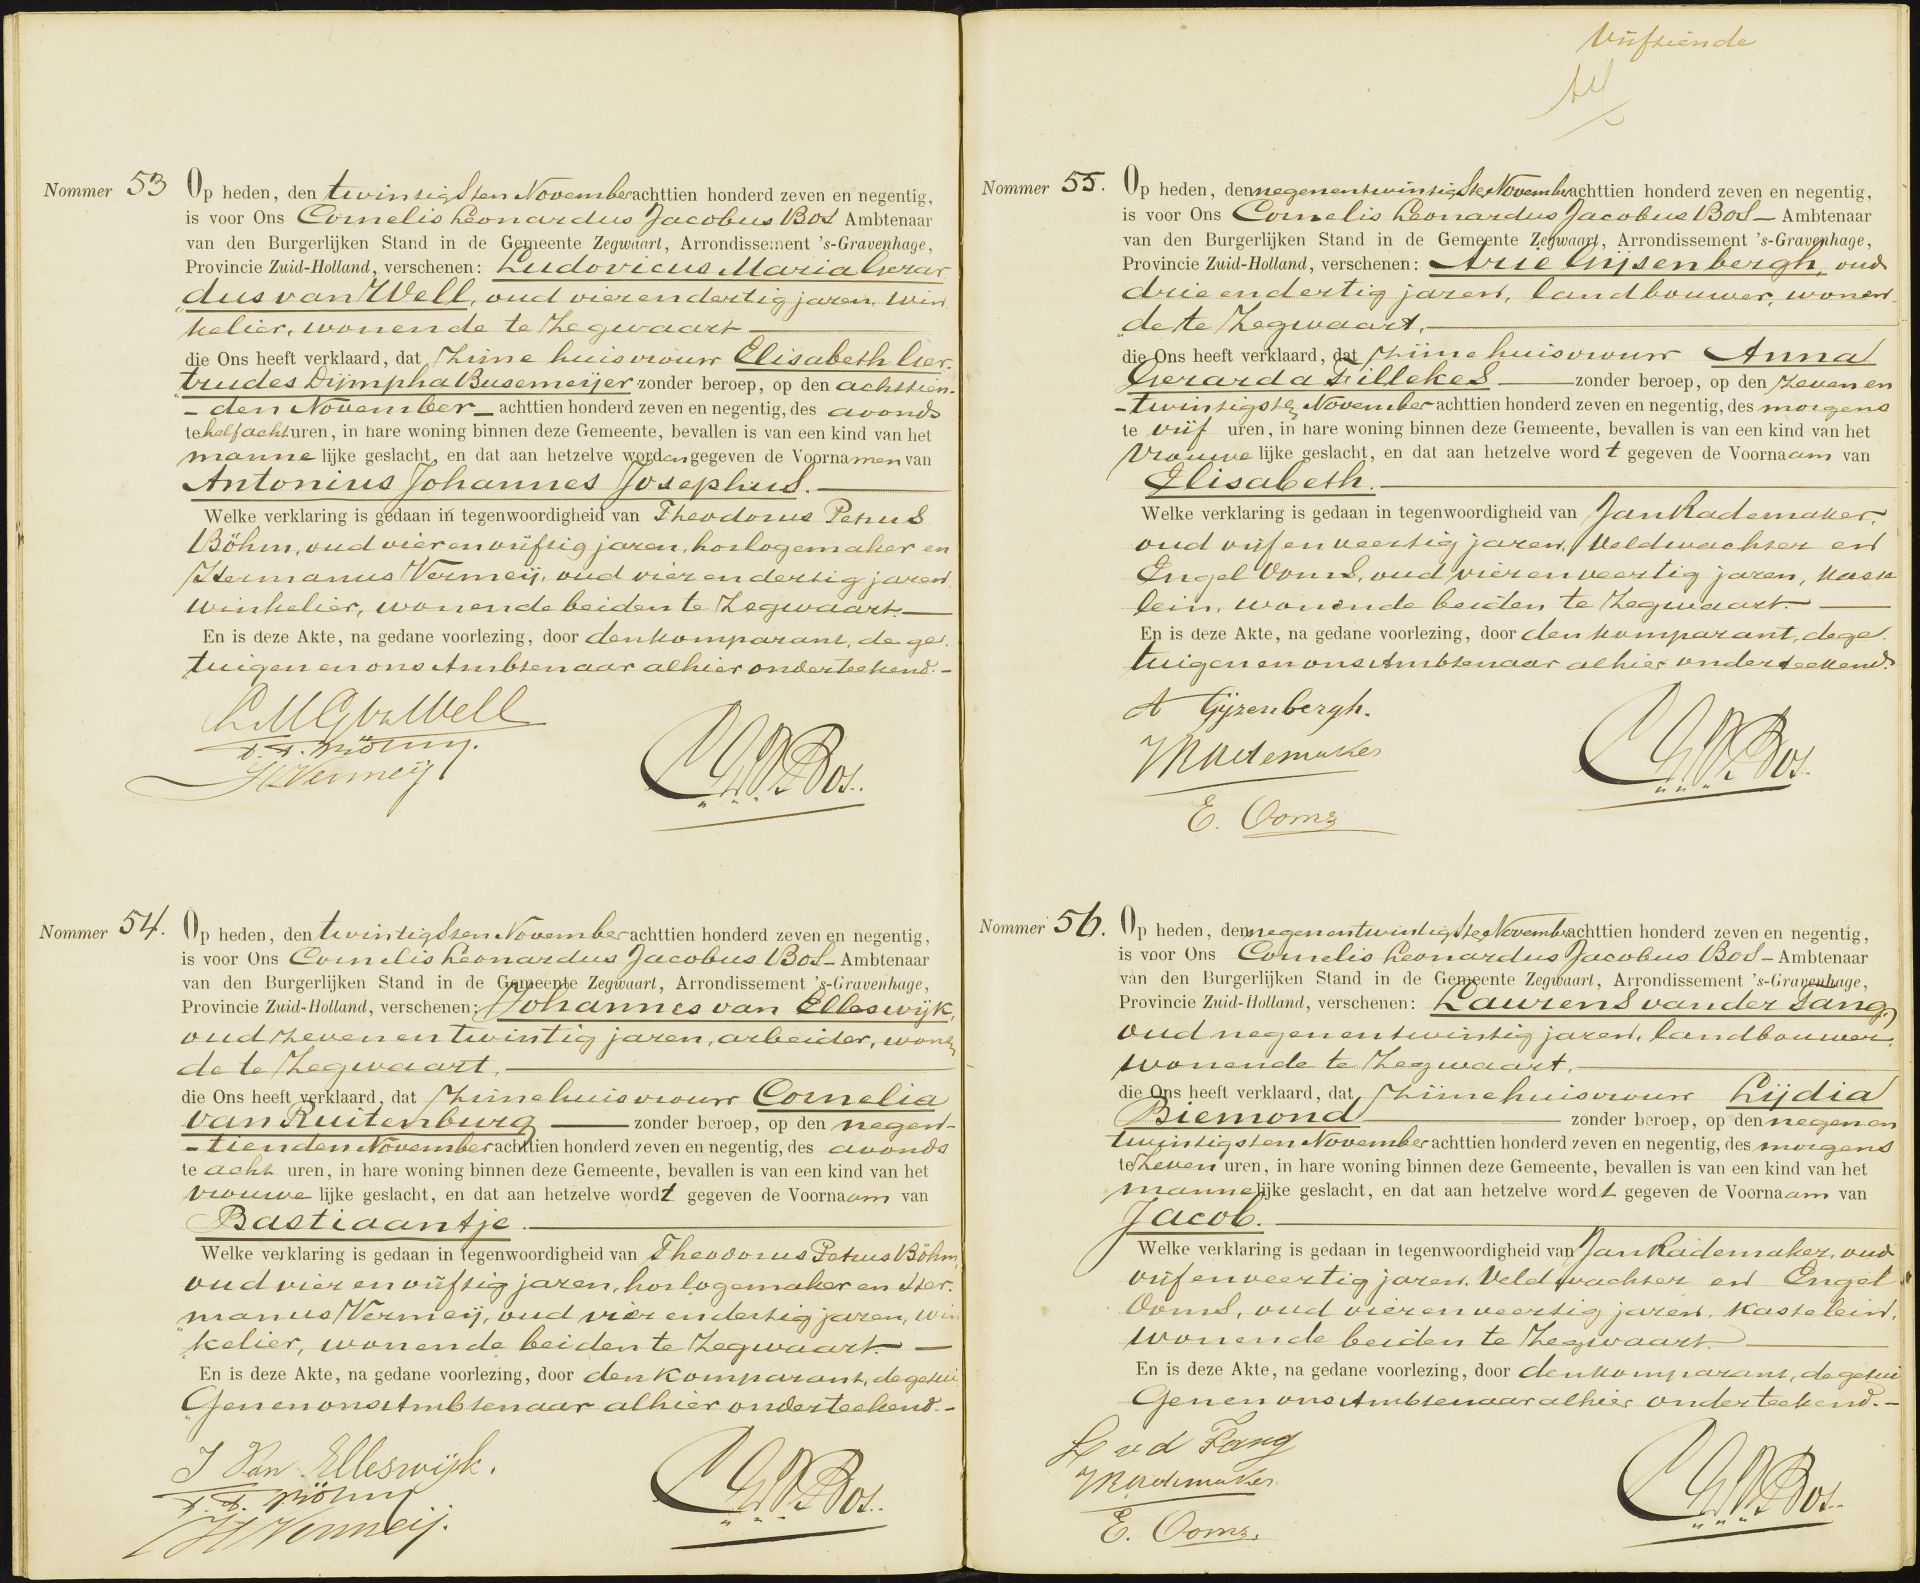 Nommer 53 Op heden, den twintigsten November achttien honderd zeven en negentig,
is voor Ons Cornelis Leonardus Jacobus Bos Ambtenaar
van den Burgerlijken Stand in de Gemeente Zegwaart, Arrondissement 's-Gravenhage,
Provincie Zuid-Holland, verschenen: Ludovicus Maria Gerar
„dus van Well, oud vierendertig jaren, win
kelier, wonende te Zegwaart
die Ons heeft verklaard, dat zijne huisvrouw Elisabeth Ger
trudes Dijmpha Busemeijer zonder beroep, op den achttien-
- den November - achttien honderd zeven en negentig, des avonds
te half acht uren, in hare woning binnen deze Gemeente, bevallen is van een kind van het
manne lijke geslacht, en dat aan hetzelve worden gegeven de Voornamen van
Antonius Johannes Josephus.
Welke verklaring is gedaan in tegenwoordigheid van Theodorus Petrus
Böhm, oud vier en vijftig jaren, horlogemaker en
Hermanus Vermeij, oud vier en dertig jaren
winkelier, wonende beiden te Zegwaart
En is deze Akte, na gedane voorlezing, door den komparant, de ge
tuigen en ons Ambtenaar alhier onderteekend.-
L M G v Well
T. P. Böhm.
H Vermeij
C L J Bos.
Nommer 54. Op heden, den twintigsten November achttien honderd zeven en negentig,
is voor Ons Cornelis Leonardus Jacobus Bos - Ambtenaar
van den Burgerlijken Stand in de Gemeente Zegwaart, Arrondissement 's-Gravenhage,
Provincie Zuid-Holland, verschenen: Johannes van Elleswijk,
oud zeven en twintig jaren, arbeider, wonen
de te Zegwaart.
die Ons heeft verklaard, dat zijne huisvrouw Cornelia
van Ruitenburg zonder beroep, op den negen-
- tienden November achttien honderd zeven en negentig, des avonds
te acht uren, in hare woning binnen deze Gemeente, bevallen is van een kind van het
vrouwe lijke geslacht, en dat aan hetzelve wordt gegeven de Voornaam van
Bastiaantje.
Welke verklaring is gedaan in tegenwoordigheid van Theodorus Petrus Böhm,
oud vier en vijftig jaren, horlogemaker en Her.
manus Vermeij, oud vier en dertig jaren, win
„kelier, wonende beiden te Zegwaart. -
En is deze Akte, na gedane voorlezing, door den komparant, de getui
„Gen en ons Ambtenaar alhier onderteekend.-
J Van Elleswijk.
T. P. Böhm
H Vermeij.
C L J Bos.
Vijftiende
Nommer 55. Op heden, den negenentwintigsten November achttien honderd zeven en negentig,
is voor Ons Cornelis Leonardus Jacobus Bos - Ambtenaar
van den Burgerlijken Stand in de Gemeente Zegwaart, Arrondissement 's-Gravenhage,
Provincie Zuid-Holland, verschenen: Arie Gijsenbergh, oud
drie en dertig jaren, landbouwer, wonen
„de te Zegwaart.
die Ons heeft verklaard, dat zijne huisvrouw Anna
Gerarda Fillekes zonder beroep, op den zeven en
- twintigsten November achttien honderd zeven en negentig, des morgens
te vijf uren, in hare woning binnen deze Gemeente, bevallen is van een kind van het
Vrouwe lijke geslacht, en dat aan hetzelve wordt gegeven de Voornaam van
Elisabeth.
Welke verklaring is gedaan in tegenwoordigheid van Jan Rademaker,
oud vijf en veertig jaren, Veldwachter en
Engel Ooms, oud vier en veertig jaren, kaste
lein, wonende beiden te Zegwaart.
En is deze Akte, na gedane voorlezing, door den komparant, de ge
tuigen en ons Ambtenaar alhier onderteekend.
A Gijzenbergh.
J Rademaker
E. Ooms
C L J Bos.
Nommer 56. Op heden, den negenentwintigsten November achttien honderd zeven en negentig,
is voor Ons Cornelis Leonardus Jacobus Bos - Ambtenaar
van den Burgerlijken Stand in de Gemeente Zegwaart, Arrondissement 's-Gravenhage,
Provincie Zuid-Holland, verschenen: Laurens van der Tang,
oud negen en twintig jaren, landbouwer,
wonende te Zegwaart.
die Ons heeft verklaard, dat zijne huisvrouw Lijdia
Biemond zonder beroep, op den negen en
twintigsten November achttien honderd zeven en negentig, des morgens
te zeven uren, in hare woning binnen deze Gemeente, bevallen is van een kind van het
manne lijke geslacht, en dat aan hetzelve wordt gegeven de Voornaam van
Jacob.
Welke verklaring is gedaan in tegenwoordigheid van Jan Rademaker, oud
vijf en veertig jaren, Veldwachter en Engel
Ooms, oud vier en veertig jaren, kastelein,
wonende beiden te Zegwaart.
En is deze Akte, na gedane voorlezing, door den komparant, de getui
Gen en ons Ambtenaar alhier onderteekend.-
L v d Tang
J Rademaker
E. Ooms.
C L J Bos.